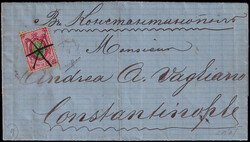 Въ Константинополь
Monsieur
Andrea A. Vagliano
Constantinople